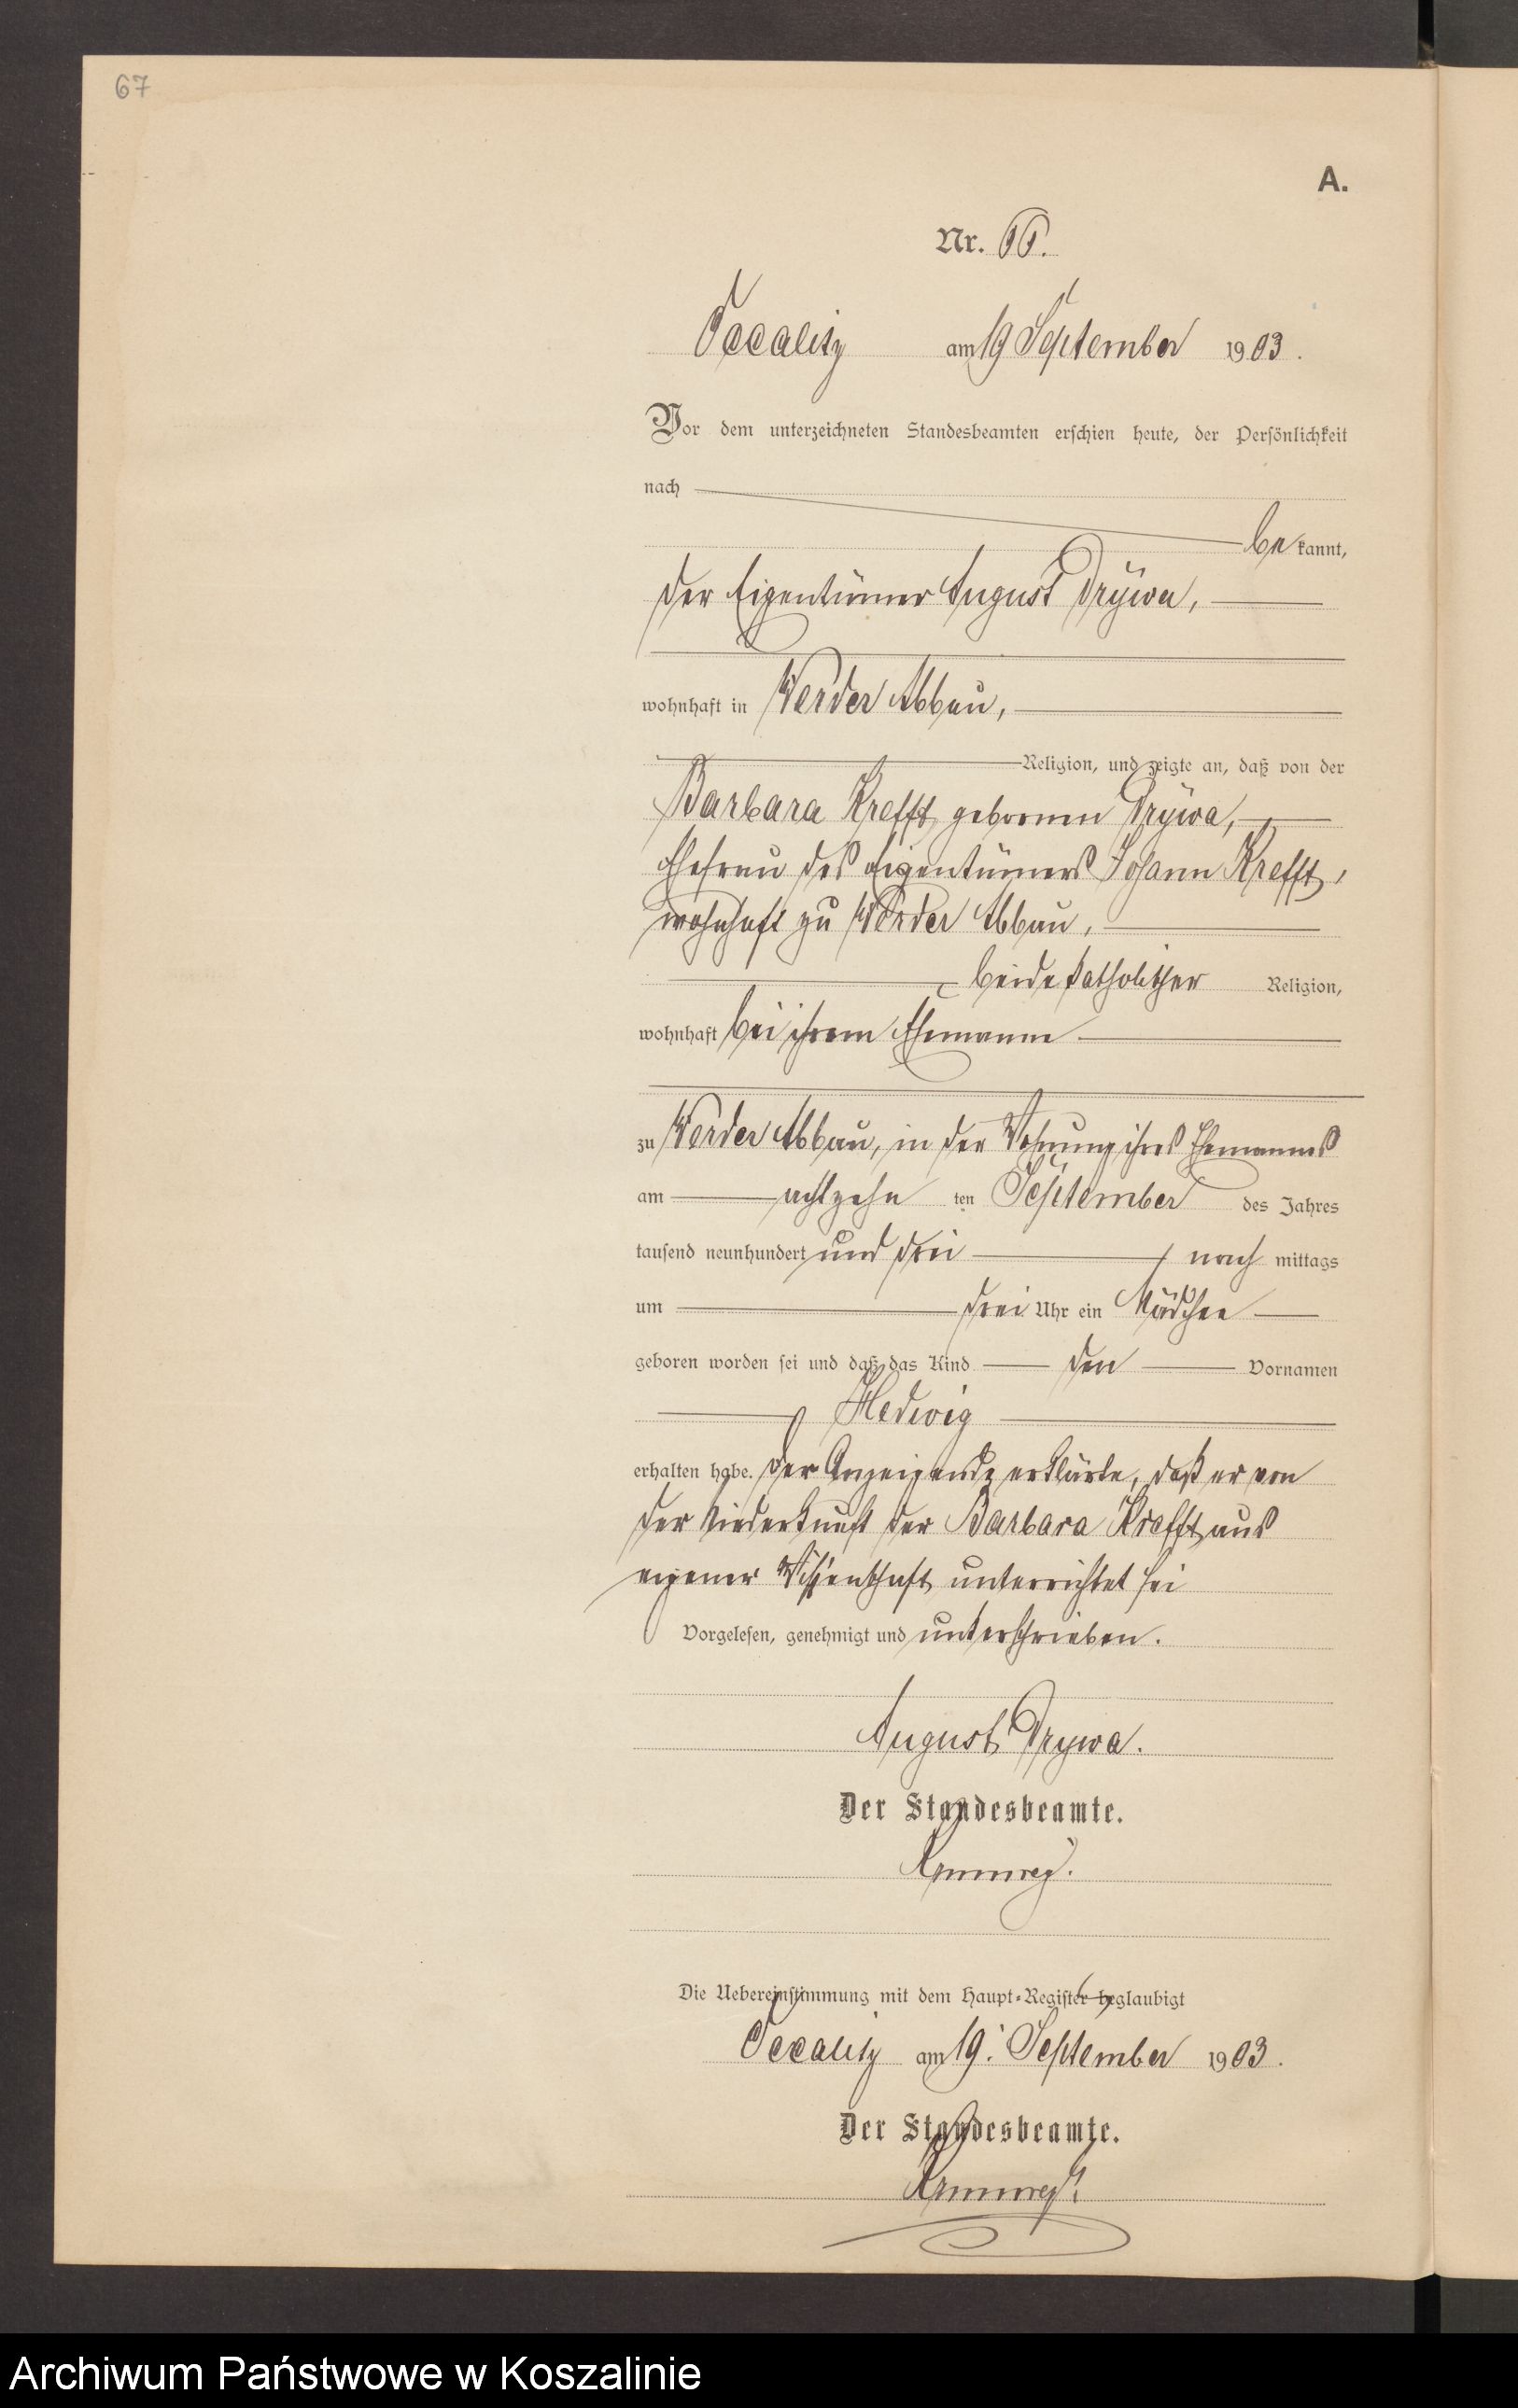 67
A.
Nr. 66.
Occalitz am 19 September 1903.
Vor dem unterzeichneten Standesbeamten erschien heute, der Persönlichkeit
nach
be kannt,
der Eigentümer August Drÿwa,
wohnhaft in Werder Abbau,
Religion, und zeigte an, daß von der
Barbara Krefft gebornen Drÿwa,
Ehefrau des Eigentümers Johann Krefft,
wohnhaft zu Werder Abbau,
beide katholischer Religion,
wohnhaft bei ihrem Ehemanne
zu Werder Abbau, in der Wohnung ihres Ehemannes
am achtzehn ten September des Jahres
tausend neunhundert und drei nach mittags
um drei Uhr ein Mädchen
geboren worden sei und daß das Kind den Vornamen
Hedwig
erhalten habe. Der Anzeigende erklärte, daß er von
der Niederkunft der Barbara Krefft aus
eigener Wissenschaft unterrichtet sei
Vorgelesen, genehmigt und unterschrieben.
August Drywa.
Der Standesbeamte.
Die Uebereinstimmung mit dem Haupt-Register beglaubigt
Occalitz am 19. September 1903.
Der Standesbeamte.
Archiwum Państwowe w Koszalinie